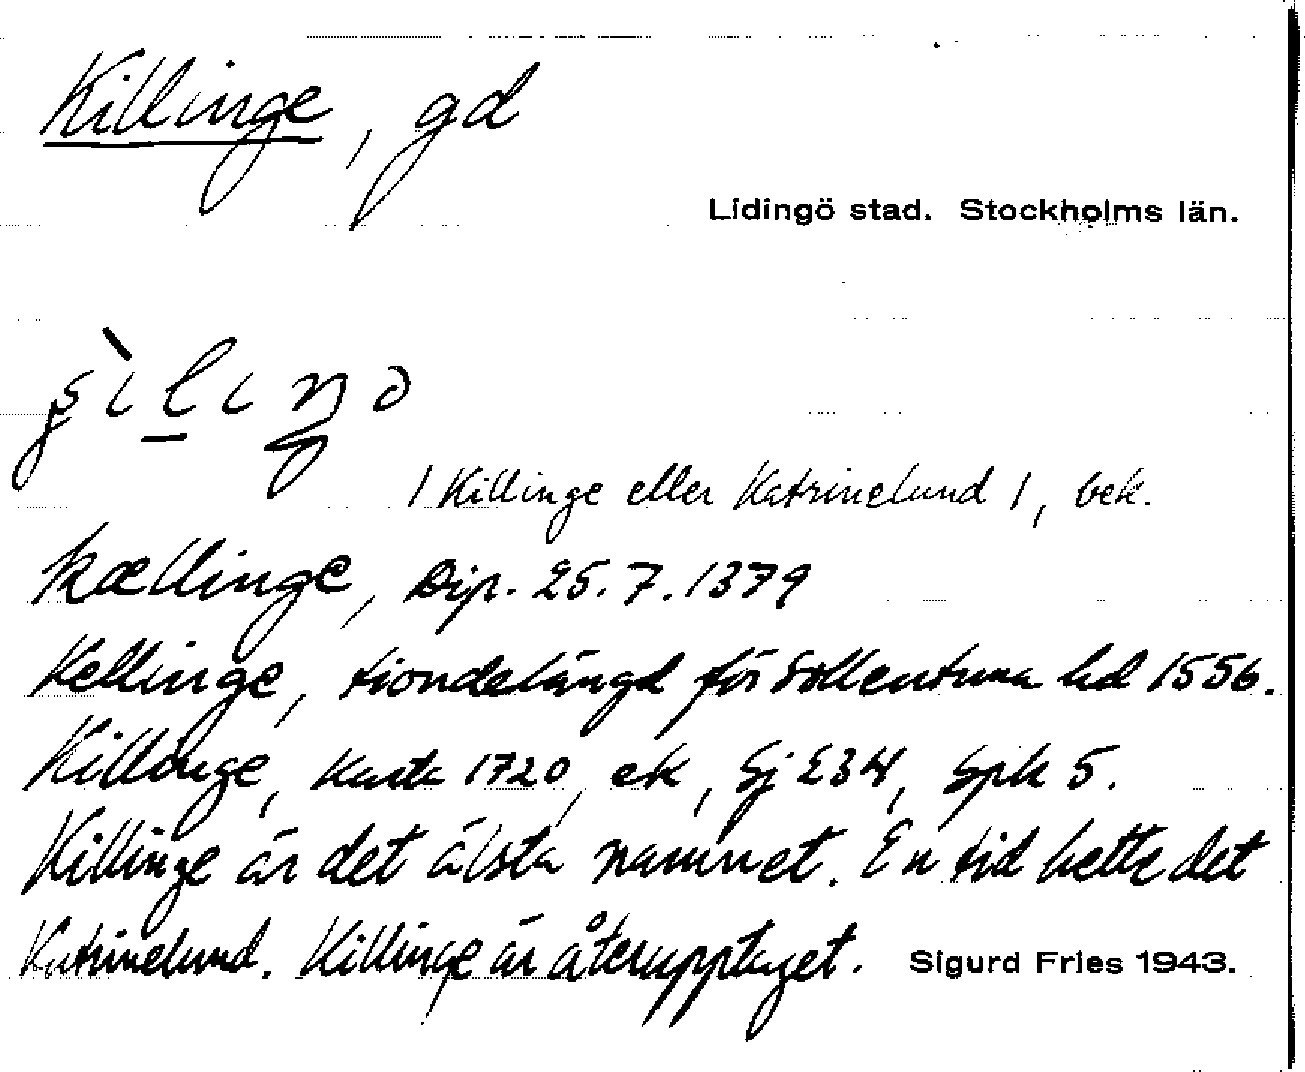 Killinge, gd
Lidingö stad. Stockholms län.
/Killinge eller Katrinelund/, bek.
kællinge, Dip. 25.7.1379
Kellinge, tiondelängd för Sollentuna hd 1556.
Killinge, karta 1720, ek, Sj E34, Spk 5.
Killinge är det älsta namnet. En tid hette det
Katrinelund. Killinge är återupptaget. Sigurd Fries 1943.